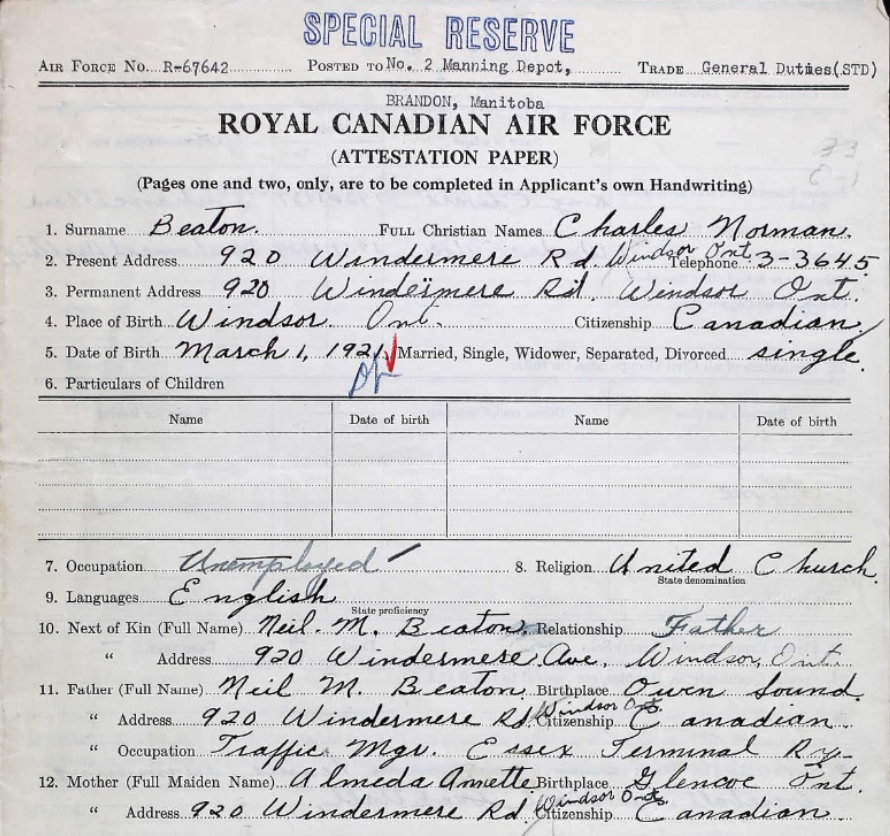 SPECIAL RESERVE
AIR FORCE No. R-67642 POSTED TO No. 2 Manning Depot, TRADE General Duties(STD)
BRANDON, Manitoba
ROYAL CANADIAN AIR FORCE
(ATTESTATION PAPER)
(Pages one and two, only, are to be completed in Applicant's own Handwriting)
1. Surname Beaton. FULL Christian Names Charles Norman.
2. Present Address 920 Windermere Rd. Windsor Ont. Telephone 3-3645
3. Permanent Address 920 Windermere Rd. Windsor Ont.
4. Place of Birth Windsor. Ont. Citizenship Canadian.
5. Date of Birth March 1, 1921 Married, Single, Widower, Separated, Divorced single.
6. Particulars of Children
Name Date of birth Name Date of birth
7. Occupation Unemployed 8. Religion United Church
State denomination
9. Languages English
State proficiency
10. Next of Kin (Full Name) Neil. M. Beaton. Relationship Father
" Address 920 Windermere Ave. Windsor, Ont.
11. Father (Full Name) Neil M. Beaton Birthplace Owen Sound.
" Address 920 Windermere Rd. Windsor Ont. Citizenship Canadian
" Occupation Traffic Mgr. Essex Terminal Ry.
12. Mother (Full Maiden Name) Almeda Annette Birthplace Glencoe Ont.
" Address 920 Windermere Rd. Windsor Ont. Citizenship Canadian